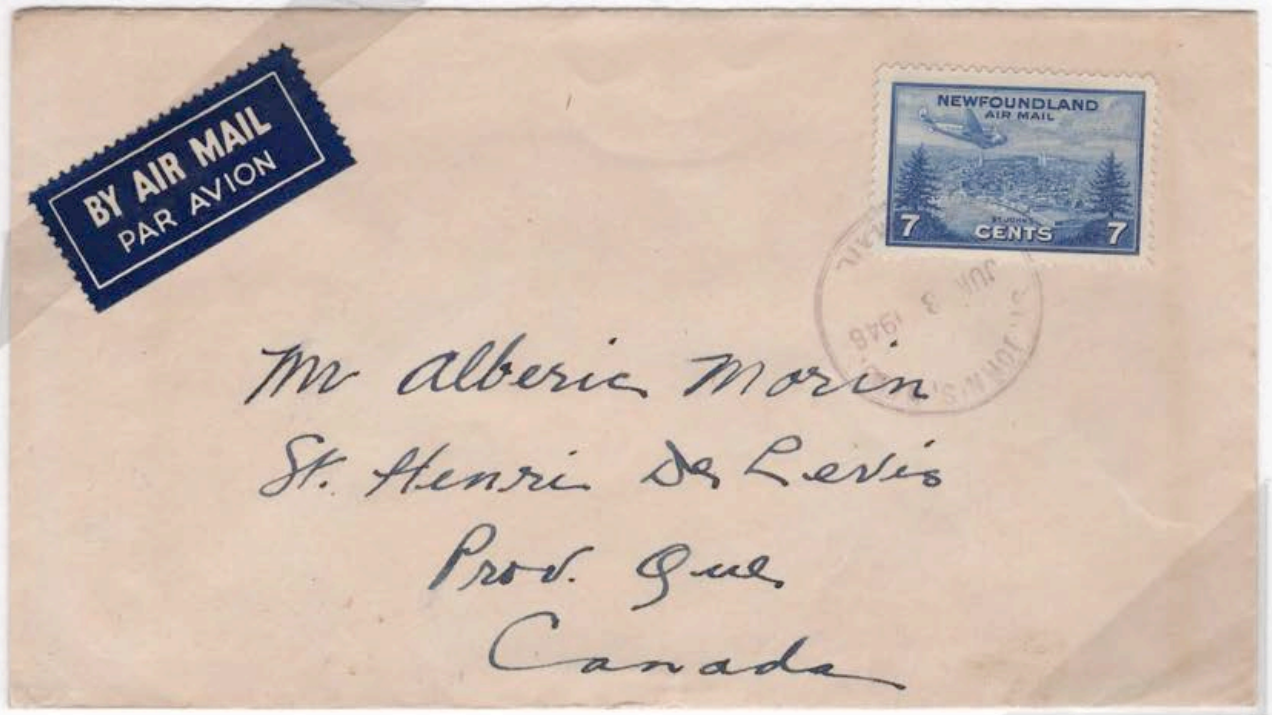 BY AIR MAIL
PAR AVION
NEWFOUNDLAND
AIR MAIL
ST. JOHN'S
7 CENTS 7
AIR MAIL
JUN 3 1946
ST. JOHN'S,
Mr Alberic Morin
St. Henri De Levis
Prov. Que
Canada